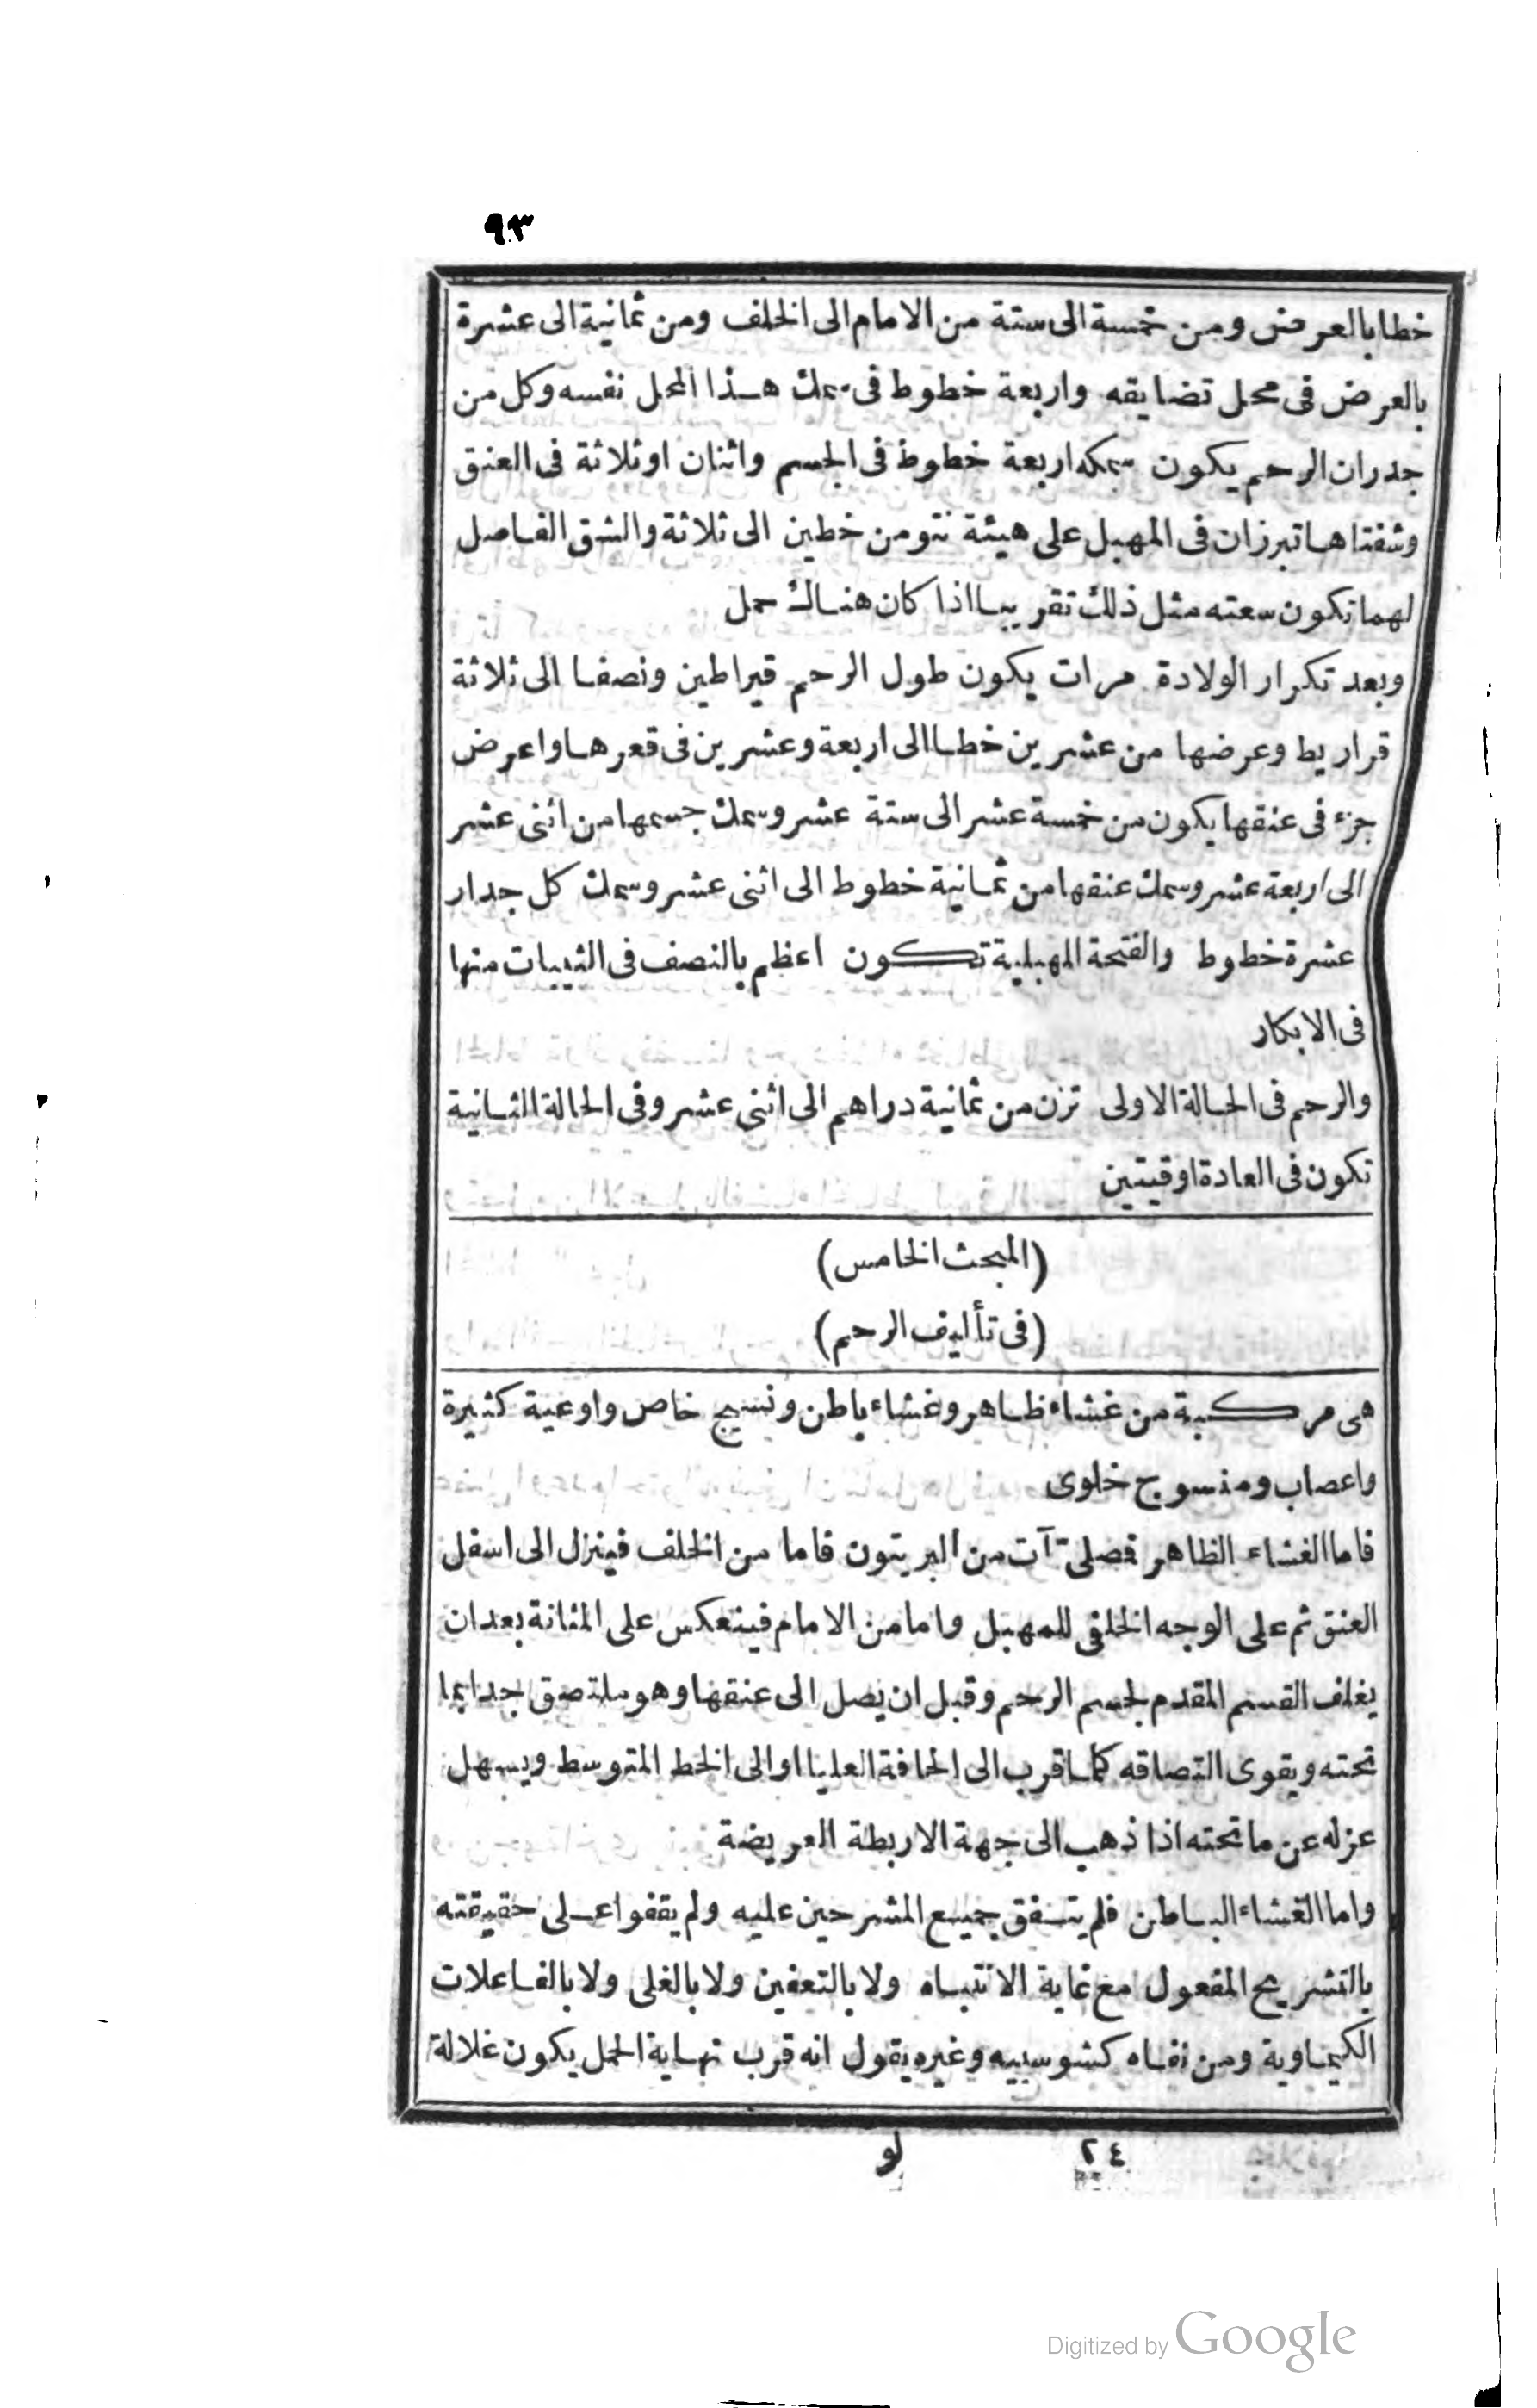 ٩٣
خطا بالعرض ومن خمسة الى ستة من الامام الى الخلف ومن ثمانية الى عشرة
بالعرض فى محل تضايقه واربعة خطوط فى سمك هذا المحل نفسه وكل من
جدران الرحم يكون سمكه اربعة خطوط فى الجسم واثنان او ثلاثة فى العنق
وشفتاها تبرزان فى المهبل على هيئة نتو من خطين الى ثلاثة والشق الفاصل
لهما تكون سعته مثل ذلك تقريبا اذا كان هناك حمل
وبعد تكرار الولادة مرات يكون طول الرحم قيراطين ونصفا الى ثلاثة
قراريط وعرضها من عشرين خطا الى اربعة وعشرين فى قعرها واعرض
جزء فى عنقها يكون من خمسة عشر الى ستة عشر وسمك جسمها من اثنى عشر
الى اربعة عشر وسمك عنقها من ثمانية خطوط الى اثنى عشر وسمك كل جدار
عشرة خطوط والفتحة المهبلية تكون اعظم بالنصف فى الثيبات منها
فى الابكار
والرحم فى الحالة الاولى تزن من ثمانية دراهم الى اثنى عشر وفى الحالة الثانية
تكون فى العادة اوقيتين
(المبحث الخامس)
(فى تأليف الرحم)
هى مركبة من غشاء ظاهر وغشاء باطن ونسيج خاص واوعية كثيرة
واعصاب ومنسوج خلوى
فاما الغشاء الظاهر فصلى آت من البريتون فاما من الخلف فينزل الى اسفل
العنق ثم على الوجه الخلفى للمهبل واما من الامام فينعكس على المثانة بعد ان
يغلف القسم المقدم لجسم الرحم وقبل ان يصل الى عنقها وهو ملتصق جدا بما
تحته ويقوى التصاقه كلما قرب الى الحافة العليا او الى الخط المتوسط ويسهل
عزله عن ما تحته اذا ذهب الى جهة الاربطة العريضة
واما الغشاء الباطن فلم يتفق جميع المشرحين عليه ولم يقفوا على حقيقته
بالتشريح المفعول مع غاية الانتباه ولا بالتعفين ولا بالغلى ولا بالفاعلات
الكيماوية ومن نفاه كشوسييه وغيره يقول انه قرب نهاية الحمل يكون غلالة
٢٤ لو
Digitized by Google